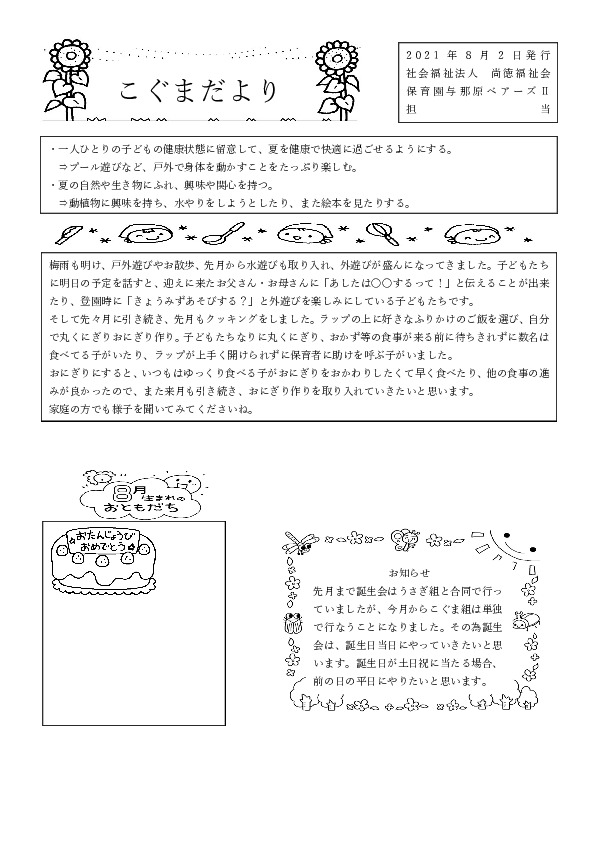 こぐまだより
2021年8月2日発行
社会福祉法人　尚徳福祉会
保育園与那原ベアーズⅡ
担当
・一人ひとりの子どもの健康状態に留意して、夏を健康で快適に過ごせるようにする。
⇒プール遊びなど、戸外で身体を動かすことをたっぷり楽しむ。
・夏の自然や生き物にふれ、興味や関心を持つ。
⇒動植物に興味を持ち、水やりをしようとしたり、また絵本を見たりする。
梅雨も明け、戸外遊びやお散歩、先月から水遊びも取り入れ、外遊びが盛んになってきました。子どもたち
に明日の予定を話すと、迎えに来たお父さん・お母さんに「あしたは〇〇するって！」と伝えることが出来
たり、登園時に「きょうみずあそびする？」と外遊びを楽しみにしている子どもたちです。
そして先々月に引き続き、先月もクッキングをしました。ラップの上に好きなふりかけのご飯を選び、自分
で丸くにぎりおにぎり作り。子どもたちなりに丸くにぎり、おかず等の食事が来る前に待ちきれずに数名は
食べてる子がいたり、ラップが上手く開けられずに保育者に助けを呼ぶ子がいました。
おにぎりにすると、いつもはゆっくり食べる子がおにぎりをおかわりしたくて早く食べたり、他の食事の進
みが良かったので、また来月も引き続き、おにぎり作りを取り入れていきたいと思います。
家庭の方でも様子を聞いてみてくださいね。
8月生まれの
おともだち
おたんじょうび
おめでとう
お知らせ
先月まで誕生会はうさぎ組と合同で行っ
ていましたが、今月からこぐま組は単独
で行なうことになりました。その為誕生
会は、誕生日当日にやっていきたいと思
います。誕生日が土日祝に当たる場合、
前の日の平日にやりたいと思います。